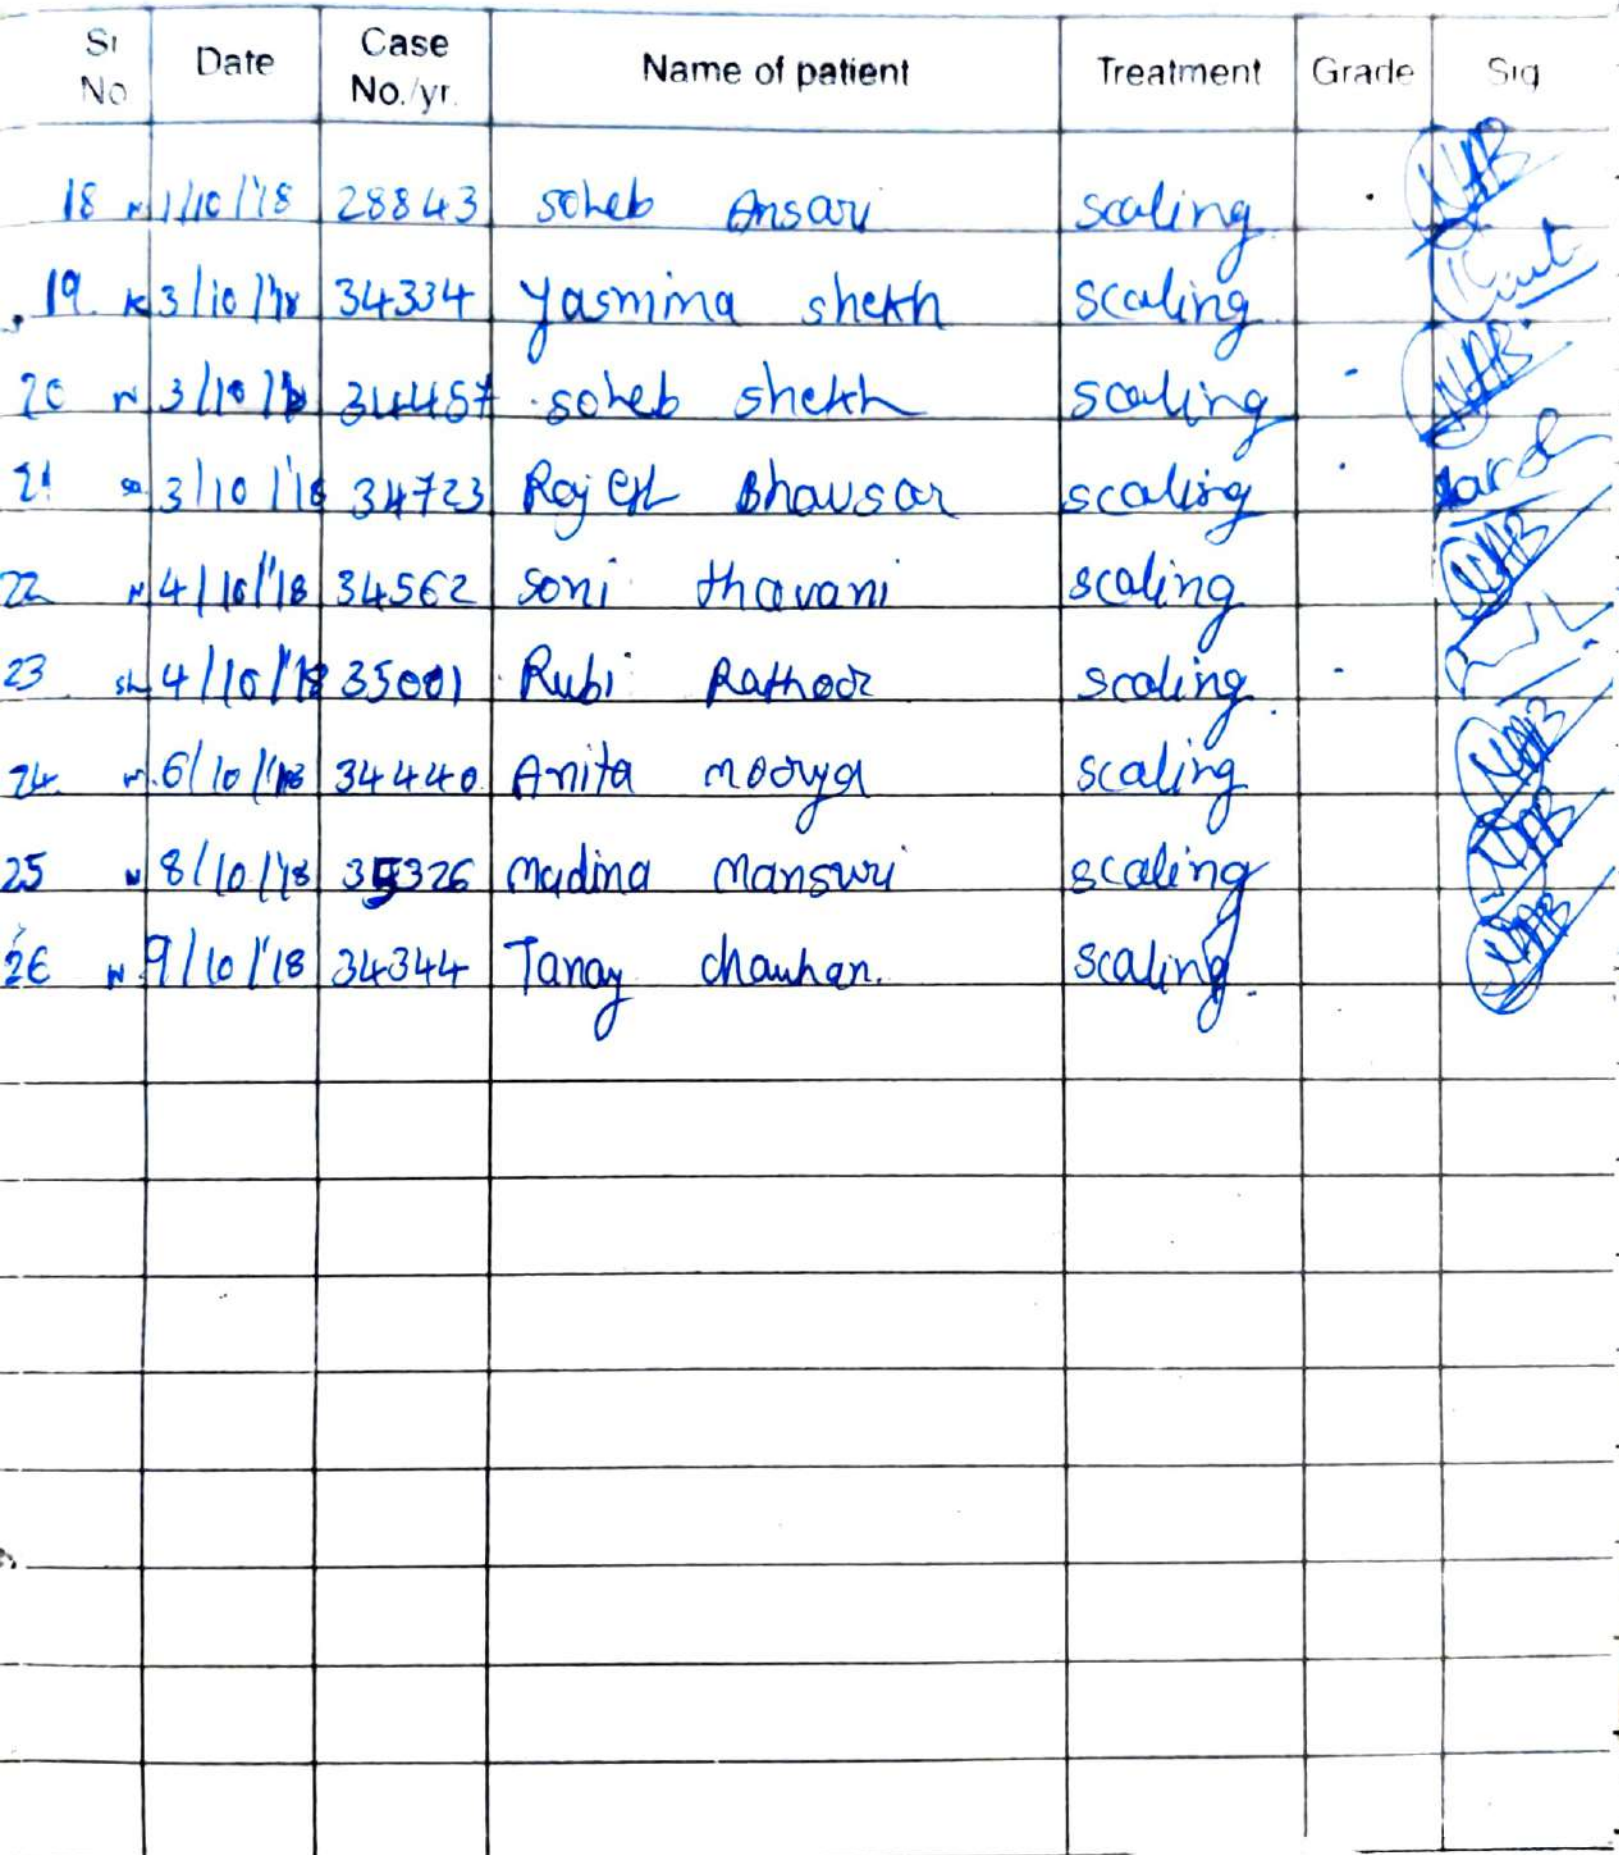 Sr No Date Case No./yr. Name of patient Treatment Grade Sig
18 N 1/10/'18 28843 soheb Ansari scaling
19. K 3/10/'18 34334 Yasmina shekh scaling
20 N 3/10/18 34457 soheb shekh scaling
21 3/10/'18 34723 Rajesh Bhavsar scaling
22 N 4/10/'18 34562 soni thavani scaling
23 sh 4/10/'18 35001 Rubi Rathod scaling
24. N 6/10/'18 34440 Anita moorya scaling
25 N 8/10/'18 35326 Madina Mansuri scaling
26 N 9/10/'18 34344 Tanay chauhan. scaling.